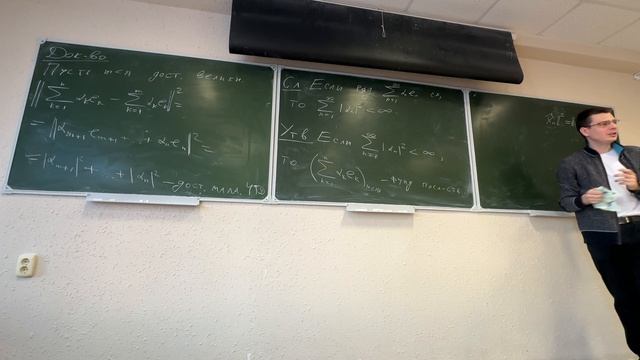 Док-во
Пусть m<n дост. велики
‖∑_{k=1}^{n} α_k e_k − ∑_{k=1}^{m} α_k e_k‖² =
= ‖α_{m+1} e_{m+1} + … + α_n e_n‖² =
= |α_{m+1}|² + … + |α_n|² – дост. мала. ЧТД
Сл. Если ряд ∑_{k=1}^{∞} α_k e_k сх,
то ∑_{k=1}^{∞} |α_k|² < ∞.
Утв. Если ∑_{k=1}^{∞} |α_k|² < ∞,
то (∑_{k=1}^{n} α_k e_k)_{n∈ℕ} – фунд. посл-сть